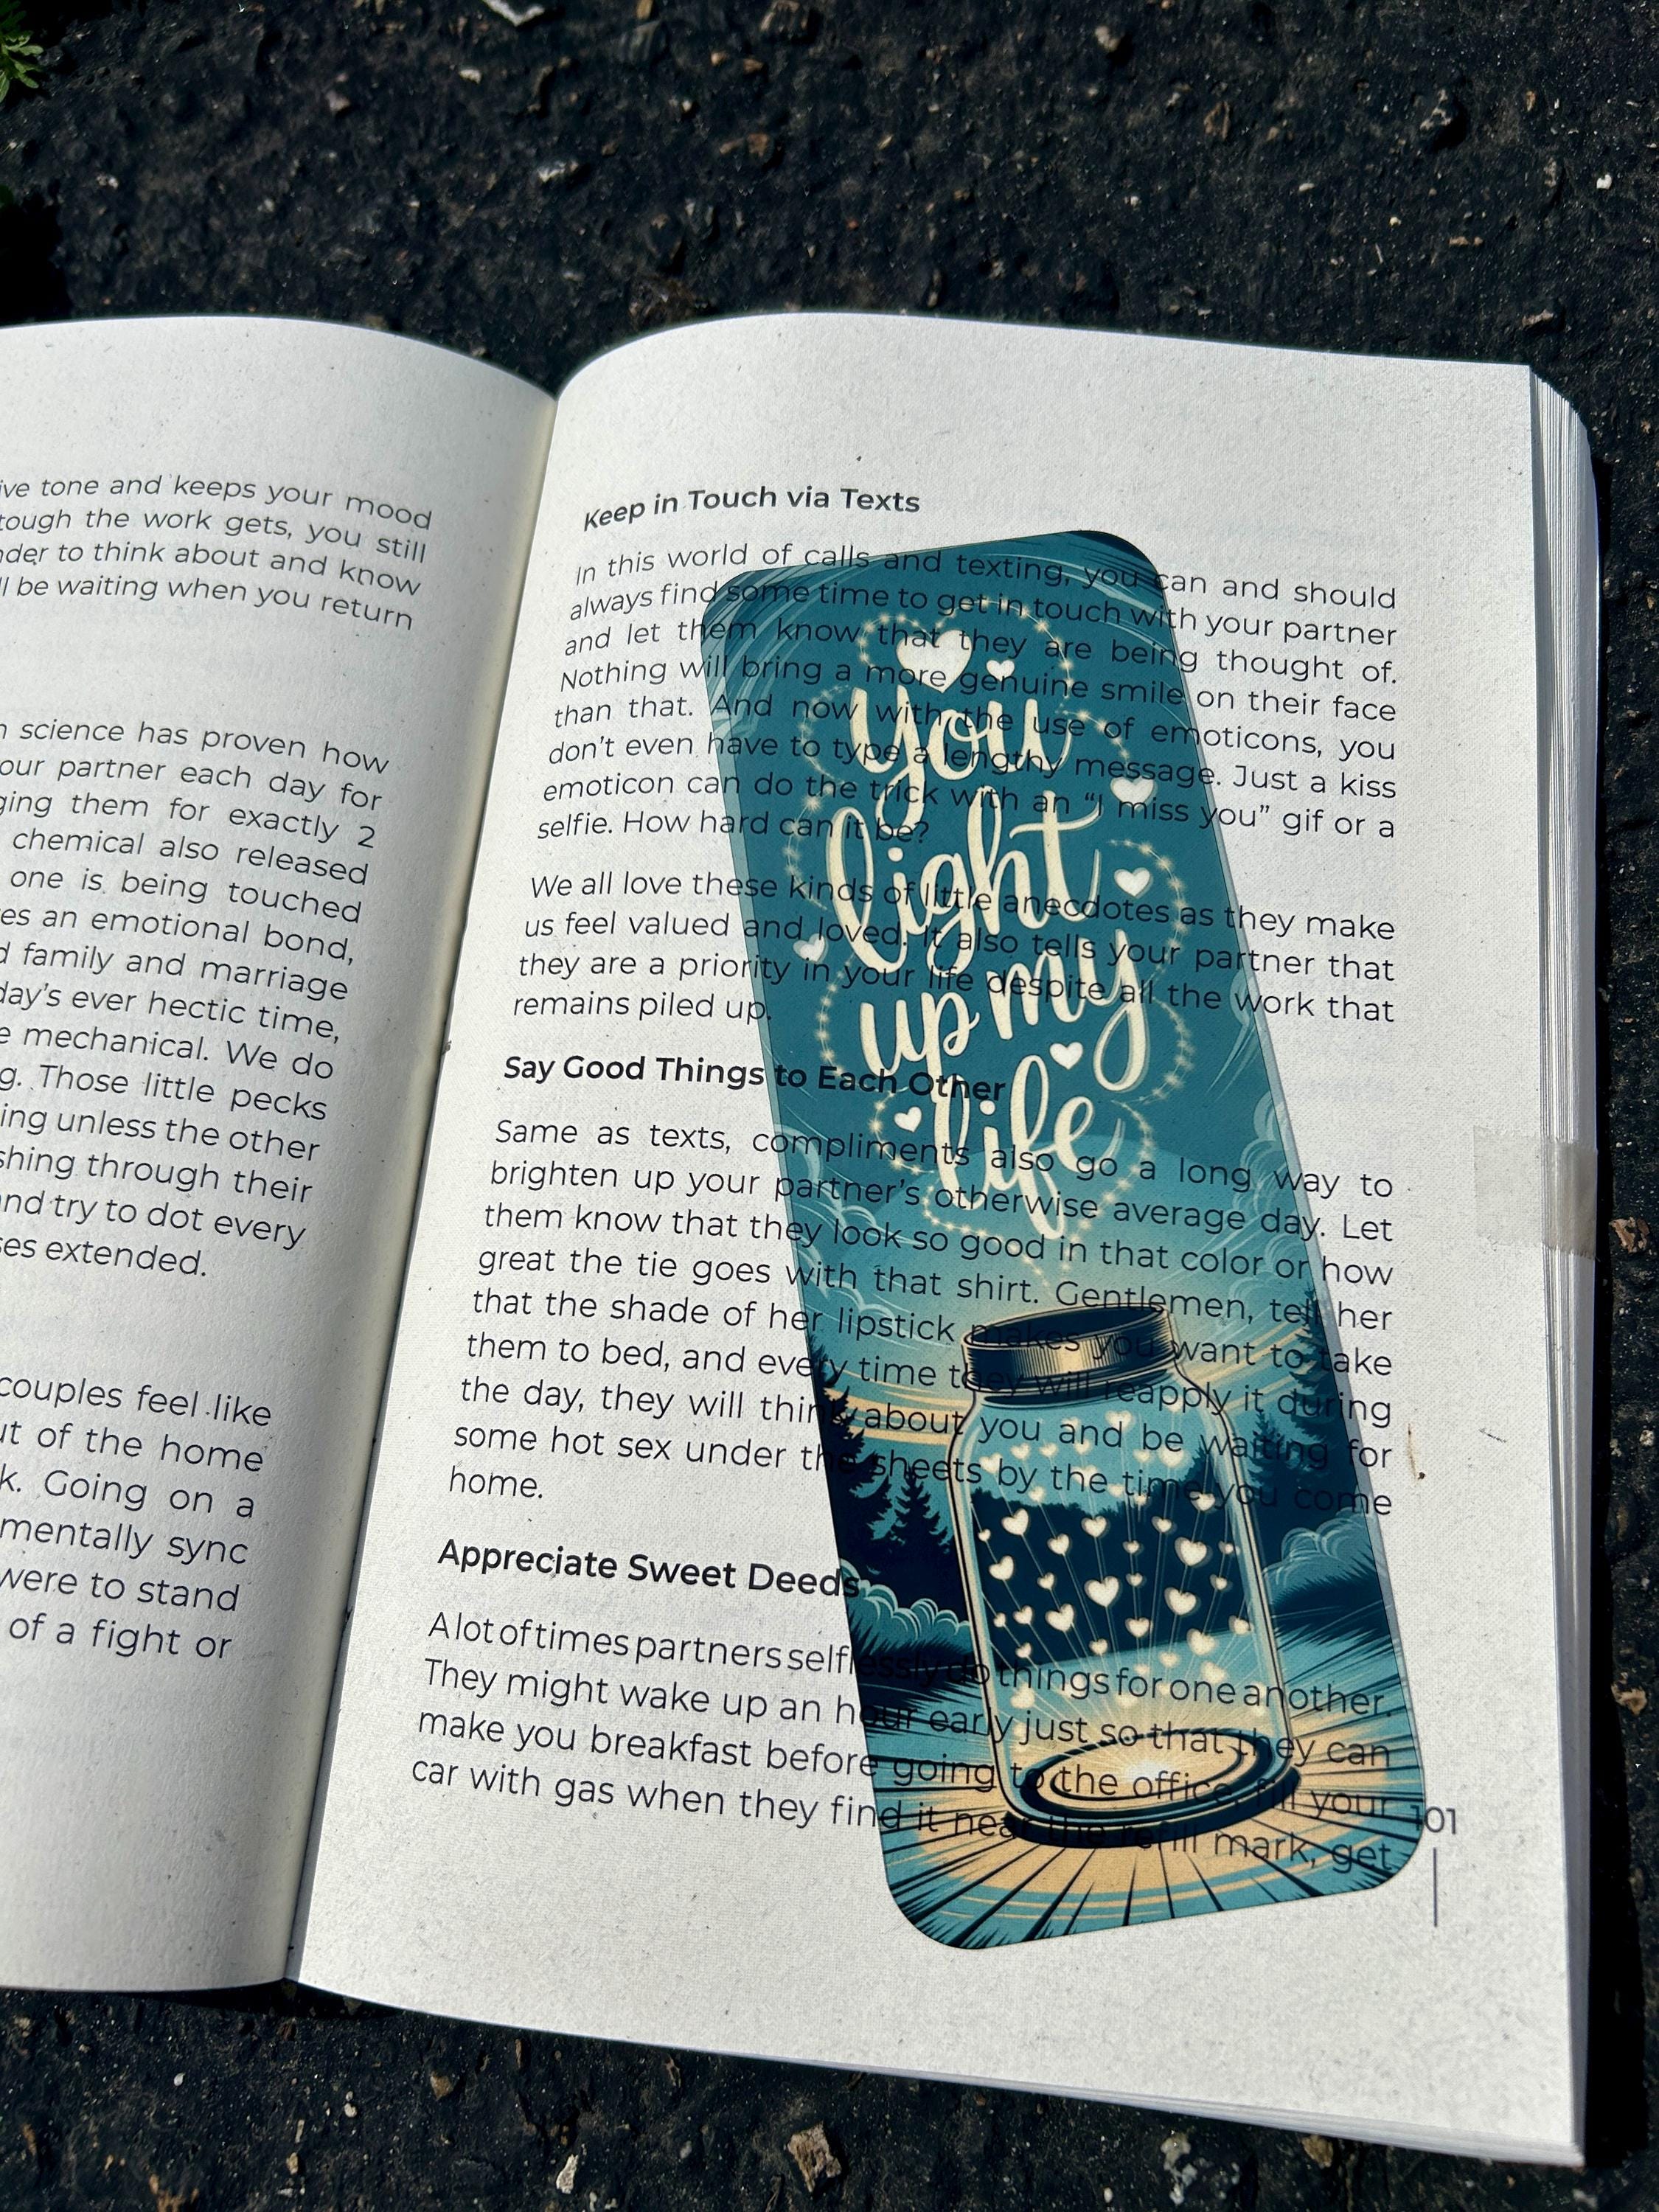 ive tone and keeps your mood
tough the work gets, you still
nder to think about and know
ll be waiting when you return
n science has proven how
our partner each day for
ging them for exactly 2
chemical also released
one is being touched
es an emotional bond,
d family and marriage
day's ever hectic time,
e mechanical. We do
g. Those little pecks
ing unless the other
shing through their
and try to dot every
ses extended.
couples feel like
ut of the home
k. Going on a
mentally sync
were to stand
of a fight or
Keep in Touch via Texts
In this world of calls and texting, you can and should
always find some time to get in touch with your partner
and let them know that they are being thought of.
Nothing will bring a more genuine smile on their face
than that. And now with the use of emoticons, you
don't even have to type a lengthy message. Just a kiss
emoticon can do the trick with an “I miss you” gif or a
selfie. How hard can it be?
We all love these kinds of little anecdotes as they make
us feel valued and loved. It also tells your partner that
they are a priority in your life despite all the work that
remains piled up.
Say Good Things to Each Other
Same as texts, compliments also go a long way to
brighten up your partner's otherwise average day. Let
them know that they look so good in that color or how
great the tie goes with that shirt. Gentlemen, tell her
that the shade of her lipstick makes you want to take
them to bed, and every time they will reapply it during
the day, they will think about you and be waiting for
some hot sex under the sheets by the time you come
home.
Appreciate Sweet Deeds
A lot of times partners selflessly do things for one another.
They might wake up an hour early just so that they can
make you breakfast before going to the office, fill your
car with gas when they find it near the refill mark, get
101
you
light
up my
life